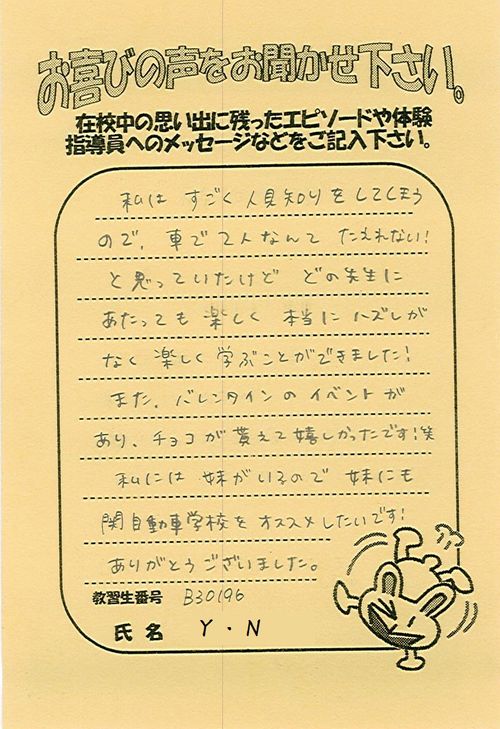 お喜びの声をお聞かせ下さい。
在校中の思い出に残ったエピソードや体験
指導員へのメッセージなどをご記入下さい。
私は すごく 人見知りをしてしまう
ので、車で2人なんて たえれない!
と思っていたけど どの先生に
あたっても 楽しく 本当に ハズレが
なく 楽しく 学ぶことができました!
また、バレンタインの イベントが
あり、チョコが貰えて嬉しかったです!笑
私には 妹がいるので 妹にも
関自動車学校を オススメしたいです!
ありがとうございました。
教習生番号 B30196
氏名 Y・N